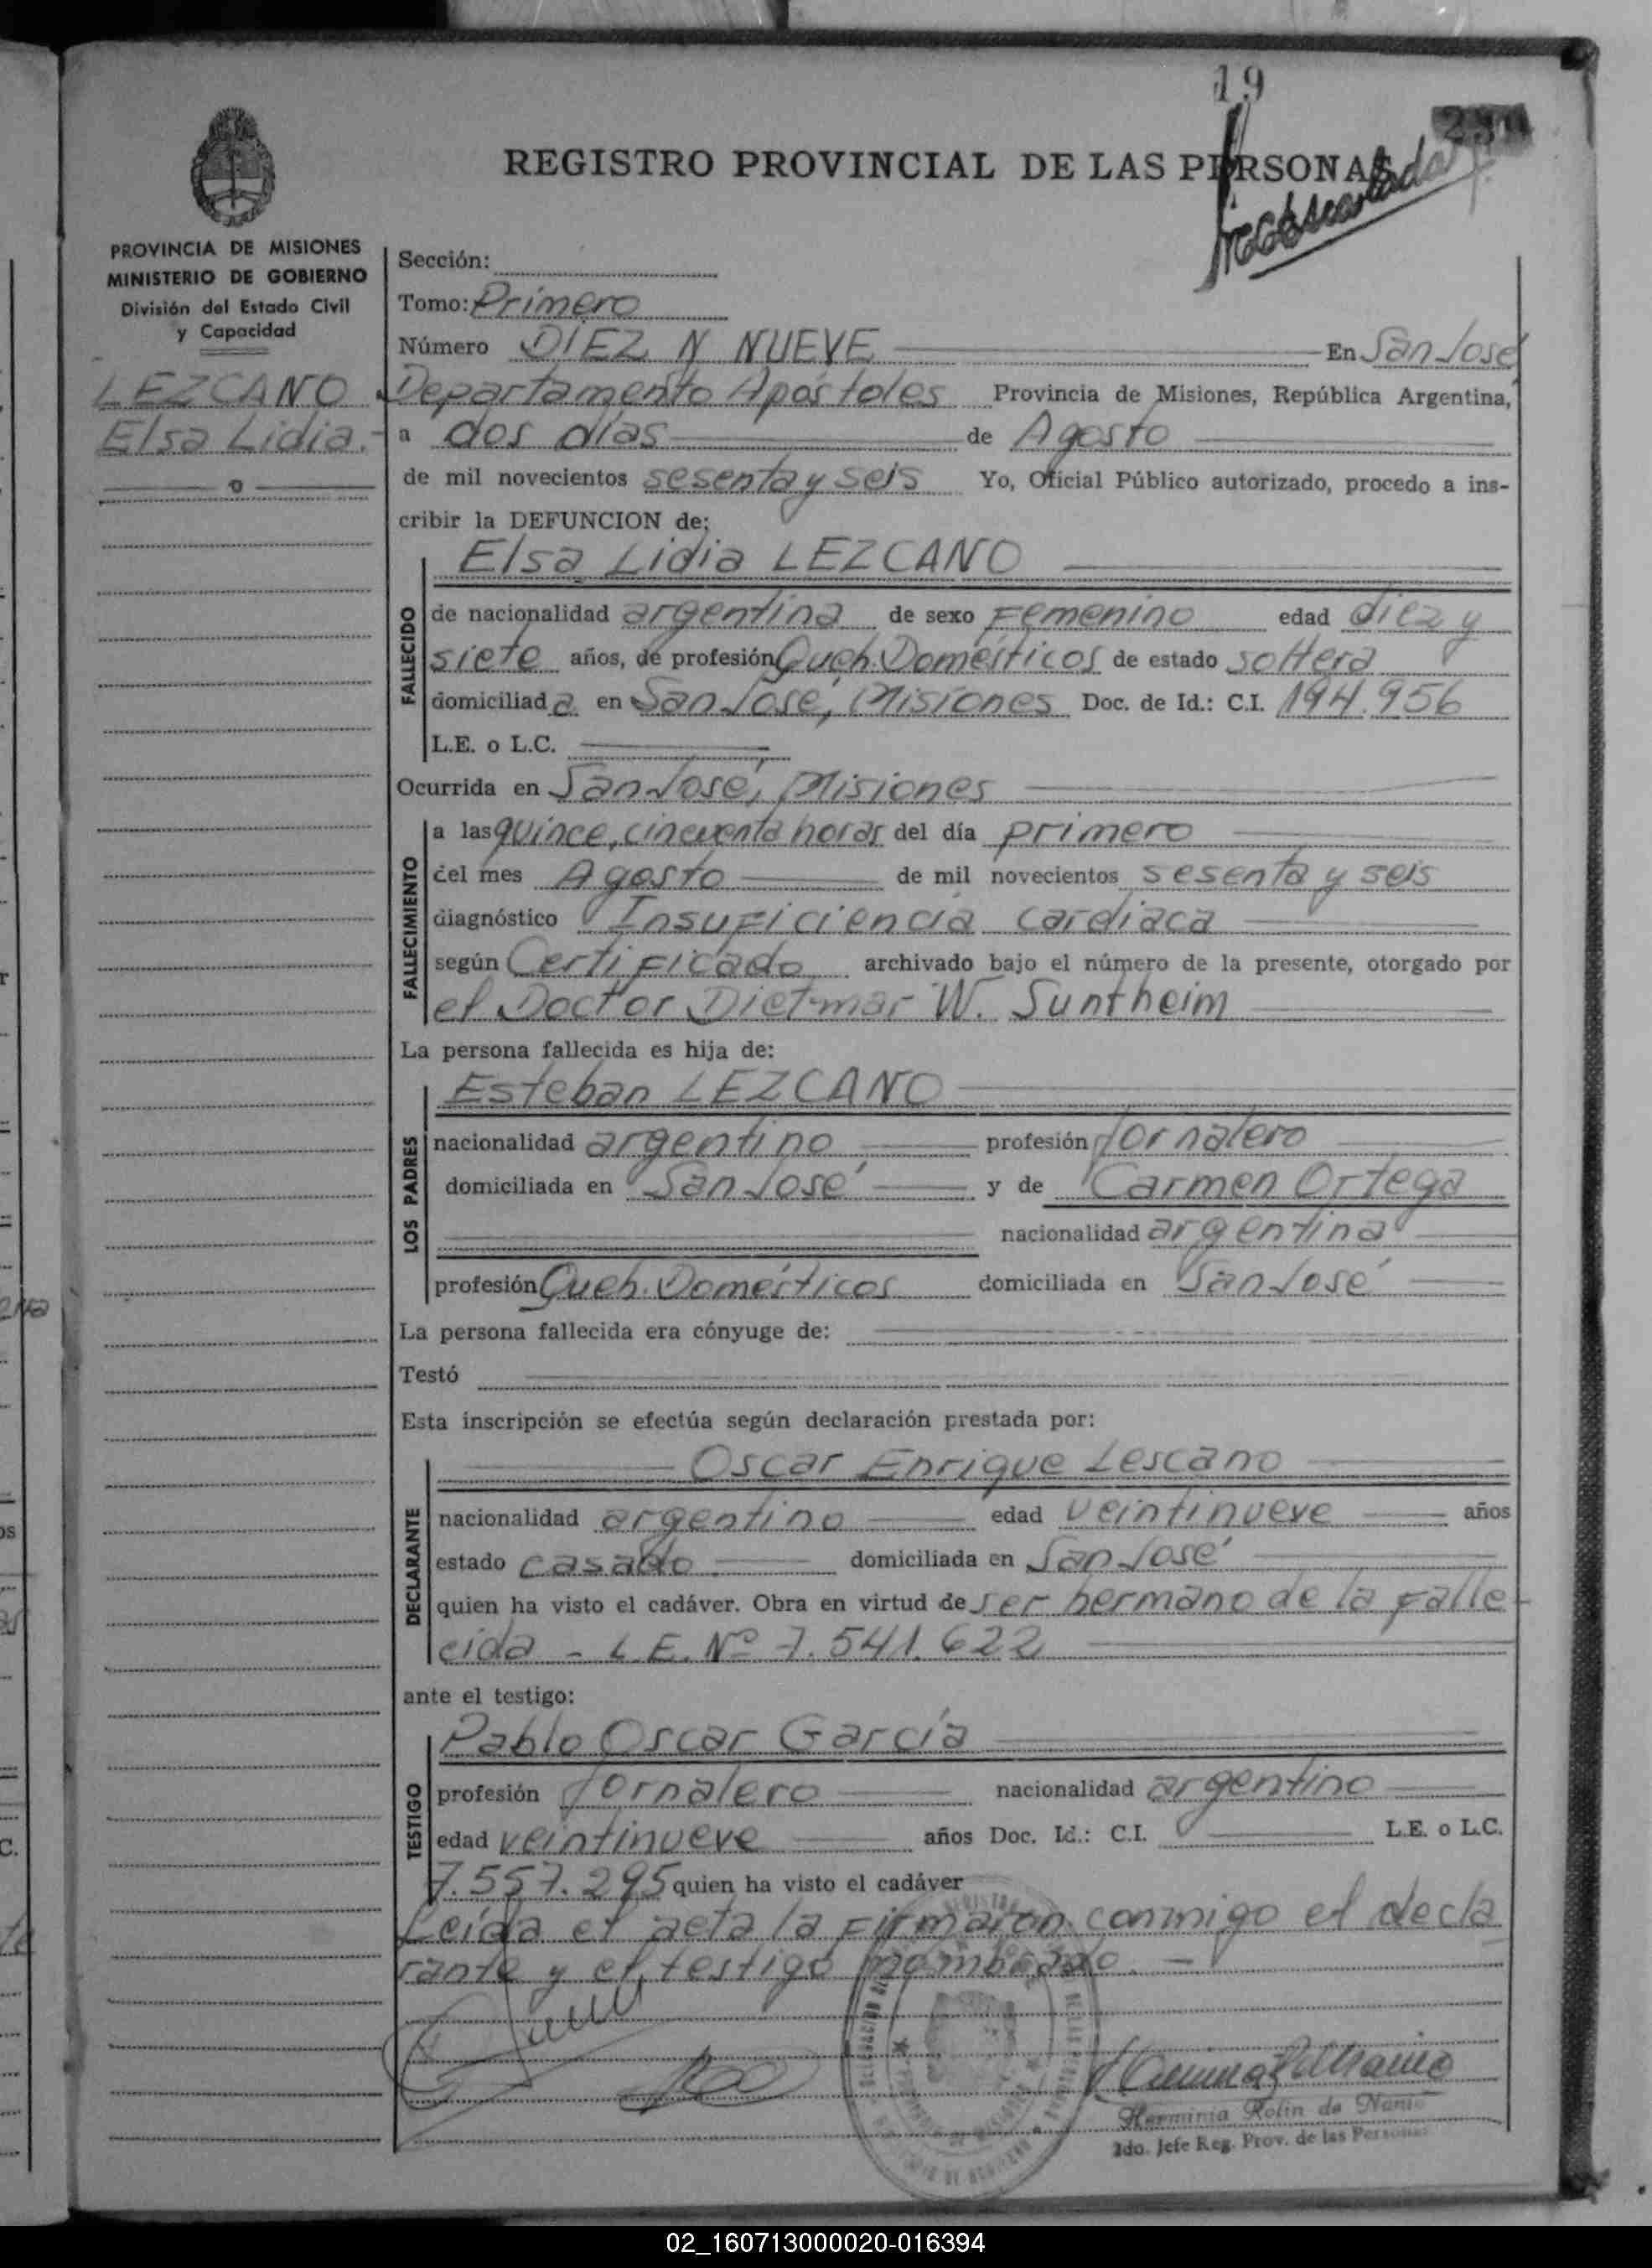 19
REGISTRO PROVINCIAL DE LAS PERSONAS
PROVINCIA DE MISIONES
MINISTERIO DE GOBIERNO
División del Estado Civil
y Capacidad
LEZCANO
Elsa Lidia.-
Sección:
Tomo: Primero
Número DIEZ Y NUEVE En San José
Departamento Apóstoles Provincia de Misiones, República Argentina,
a dos días de Agosto
de mil novecientos sesenta y seis Yo, Oficial Público autorizado, procedo a ins-
cribir la DEFUNCION de:
Elsa Lidia LEZCANO
FALLECIDO
de nacionalidad argentina de sexo Femenino edad diez y
siete años, de profesión Queh. Domésticos de estado soltera
domiciliada en San José, Misiones Doc. de Id.: C.I. 194.956
L.E. o L.C.
Ocurrida en San José, Misiones
FALLECIMIENTO
a las quince, cincuenta horas del día primero
del mes Agosto de mil novecientos sesenta y seis
diagnóstico Insuficiencia cardiaca
según Certificado archivado bajo el número de la presente, otorgado por
el Doctor Dietmar W. Suntheim
La persona fallecida es hija de:
LOS PADRES
Esteban LEZCANO
nacionalidad argentino profesión Jornalero
domiciliada en San José y de Carmen Ortega
nacionalidad argentina
profesión Queh. Domésticos domiciliada en San José
La persona fallecida era cónyuge de:
Testó
Esta inscripción se efectúa según declaración prestada por:
DECLARANTE
Oscar Enrique Lescano
nacionalidad argentino edad veintinueve años
estado casado domiciliada en San José
quien ha visto el cadáver. Obra en virtud de ser hermano de la falle-
cida - L.E. Nº 7.541.622
ante el testigo:
TESTIGO
Pablo Oscar García
profesión Jornalero nacionalidad argentino
edad veintinueve años Doc. Id.: C.I. L.E. o L.C.
7.557.295 quien ha visto el cadáver
Leída el acta la firmaron conmigo el decla
rante y el testigo nombrado. -
Herminia Rolin de Nani
2do. Jefe Reg. Prov. de las Personas
02_160713000020-016394